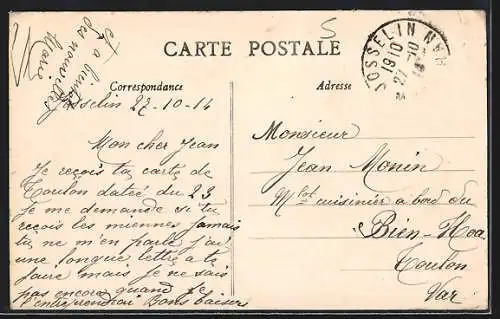 et a bientot
des nouvelles
Marie
CARTE POSTALE
Correspondance
Adresse
JOSSELIN
19 10
27 -10
14
5
Josselin 27-10-14
Mon cher Jean
Je reçois ta carte de
Toulon datée du 23
Je me demande si tu
reçois les miennes Jamais
tu ne m'en parle j'ai
une longue lettre a te
faire mais je ne sais
pas encore quand je
l'entreprendrai Bons baisers
Monsieur
Jean Monin
Mlot cuisinier a bord du
Bien-Hoa
Toulon
Var